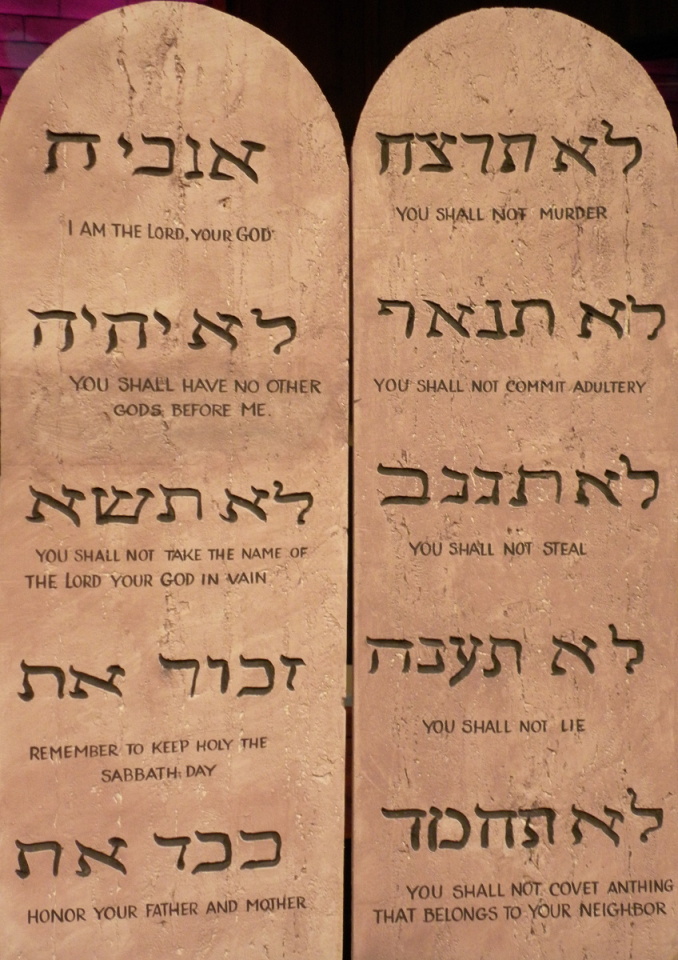 אנכי ת
I AM THE LORD, YOUR GOD
לא יהיה
YOU SHALL HAVE NO OTHER
GODS BEFORE ME.
לא תשא
YOU SHALL NOT TAKE THE NAME OF
THE LORD YOUR GOD IN VAIN
זכור את
REMEMBER TO KEEP HOLY THE
SABBATH DAY
כבד את
HONOR YOUR FATHER AND MOTHER
לא תרצח
YOU SHALL NOT MURDER
לא תנאף
YOU SHALL NOT COMMIT ADULTERY
לא תגנב
YOU SHALL NOT STEAL
לא תענה
YOU SHALL NOT LIE
לא תחמד
YOU SHALL NOT COVET ANTHING
THAT BELONGS TO YOUR NEIGHBOR